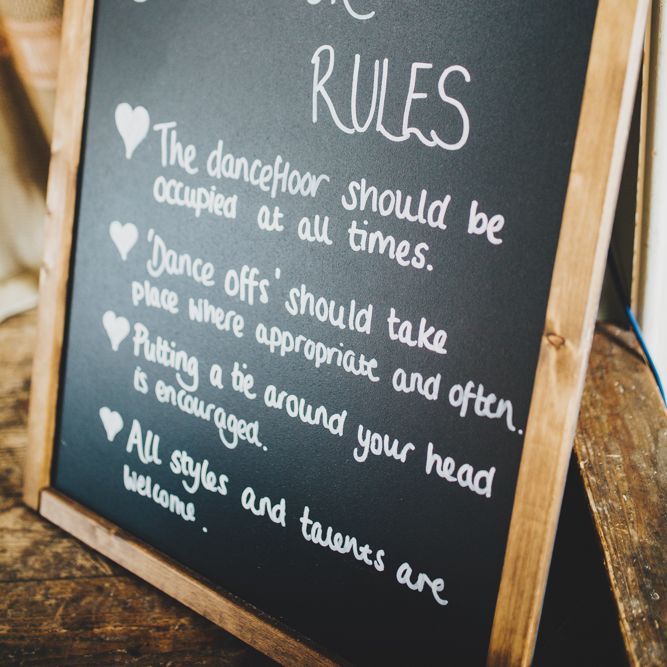 RULES
The dancefloor should be
occupied at all times.
'Dance offs' should take
place where appropriate and often.
Putting a tie around your head
is encouraged.
All styles and talents are
welcome.